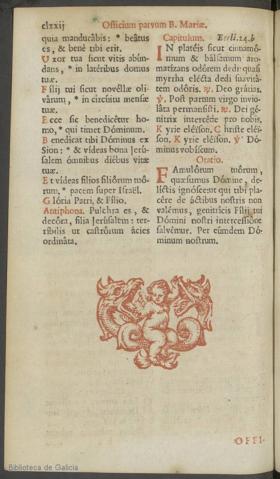 clxxij Officium parvum B. Mariæ.
quia manducábis: * beátus
es, & bene tibi erit.
Uxor tua sicut vitis abún-
dans, * in latéribus domus
tuæ.
Filij tui sicut novéllæ oli-
várum, * in circúitu mensæ
tuæ.
Ecce sic benedicétur ho-
mo, * qui timet Dóminum.
Benedícat tibi Dóminus ex
Sion: * & vídeas bona Jerú-
salem ómnibus diébus vitæ
tuæ.
Et vídeas filios filiórum tuó-
rum, * pacem super Israël.
Glória Patri, & Filio.
Antiphona. Pulchra es, &
decóra, filia Jerúsalem: ter-
ríbilis ut castrórum ácies
ordináta.
Capitulum. Eccli.24.b
IN platéis sicut cinnamó-
mum & bálsamum aro-
matízans odórem dedi: quasi
myrrha elécta dedi suavitá-
tem odóris. ℟. Deo grátias.
℣. Post partum virgo invio-
láta permansísti. ℟. Dei gé-
nitrix intercéde pro nobis.
Kyrie eléison. Christe eléi-
son. Kyrie eléison. ℣. Dó-
minus vobíscum.
Oratio.
FAmulórum tuórum,
quæsumus Dómine, de-
líctis ignósce: ut qui tibi pla-
cére de áctibus nostris non
valémus, genitrícis Fílij tui
Dómini nostri intercessióne
salvémur. Per eúmdem Dó-
minum nostrum.
OFFI-
Biblioteca de Galicia